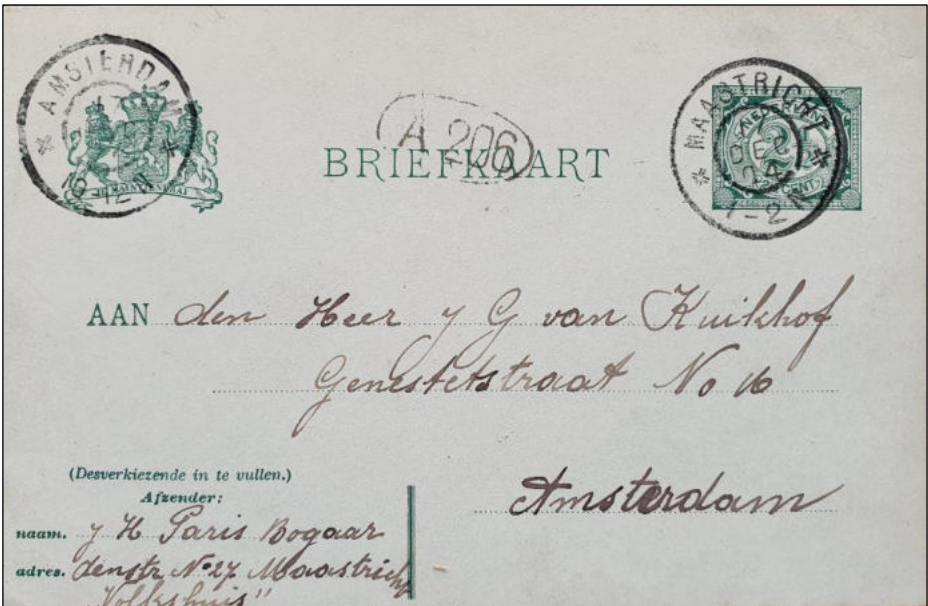 AMSTERDAM
10-12 N
JE MAINTIENDRAI
A 206
BRIEFKAART
MAASTRICHT
DEC
1-2 N
NEDERLAND
CENT
AAN den Heer J G van Kuikhof
Genestetstraat No 16
Amsterdam
(Desverkiezende in te vullen.)
Afzender:
naam. J H Paris Bogaar
adres. denstr. No 27 Maastricht
"Volkshuis"